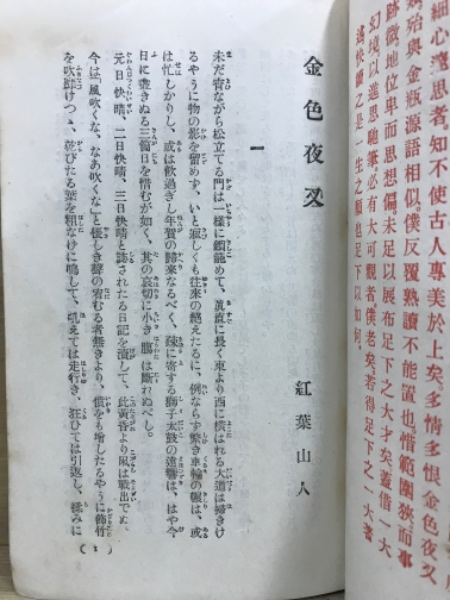 細心邃思者。知不使古人專美於上矣。多情多恨金色夜叉
殆與金瓶源語相似。僕反覆熟讀不能置也。惜範圍狹。而事
跡微。地位卑而思想偏。未足以展布足下之大才矣。蓋借一大
幻境。以運思馳筆。必有大可觀者。僕老矣。若得足下之一大著
快讀之。是一生之願也。足下以如何。
金色夜叉
紅葉山人
一
未だ宵ながら松立てる門は一樣に鎖籠めて、眞直に長く東より西に横はれる大道は掃きけ
るやうに物の影を留めず、いと寂しくも往來の絶えたるに、例ならず繁き車輪の輾は、或
は忙しかりし、或は飲過ぎし年賀の歸來なるべく、疎に寄する獅子太鼓の遠響は、はや今
日に盡きぬる三箇日を惜むが如く、其の哀切に小き膓は斷れぬべし。
元日快晴、二日快晴、三日快晴と誌されたる日記を涜して、此黄昏より凩は戰出でぬ。
今は「風吹くな、なあ吹くな」と優しき聲の宥むる者無きより、憤をも増したるやうに飾竹
を吹靡けつゝ、乾びたる葉を粗なげに鳴して、吼えては走行き、狂ひては引返し、揉みに
(1)